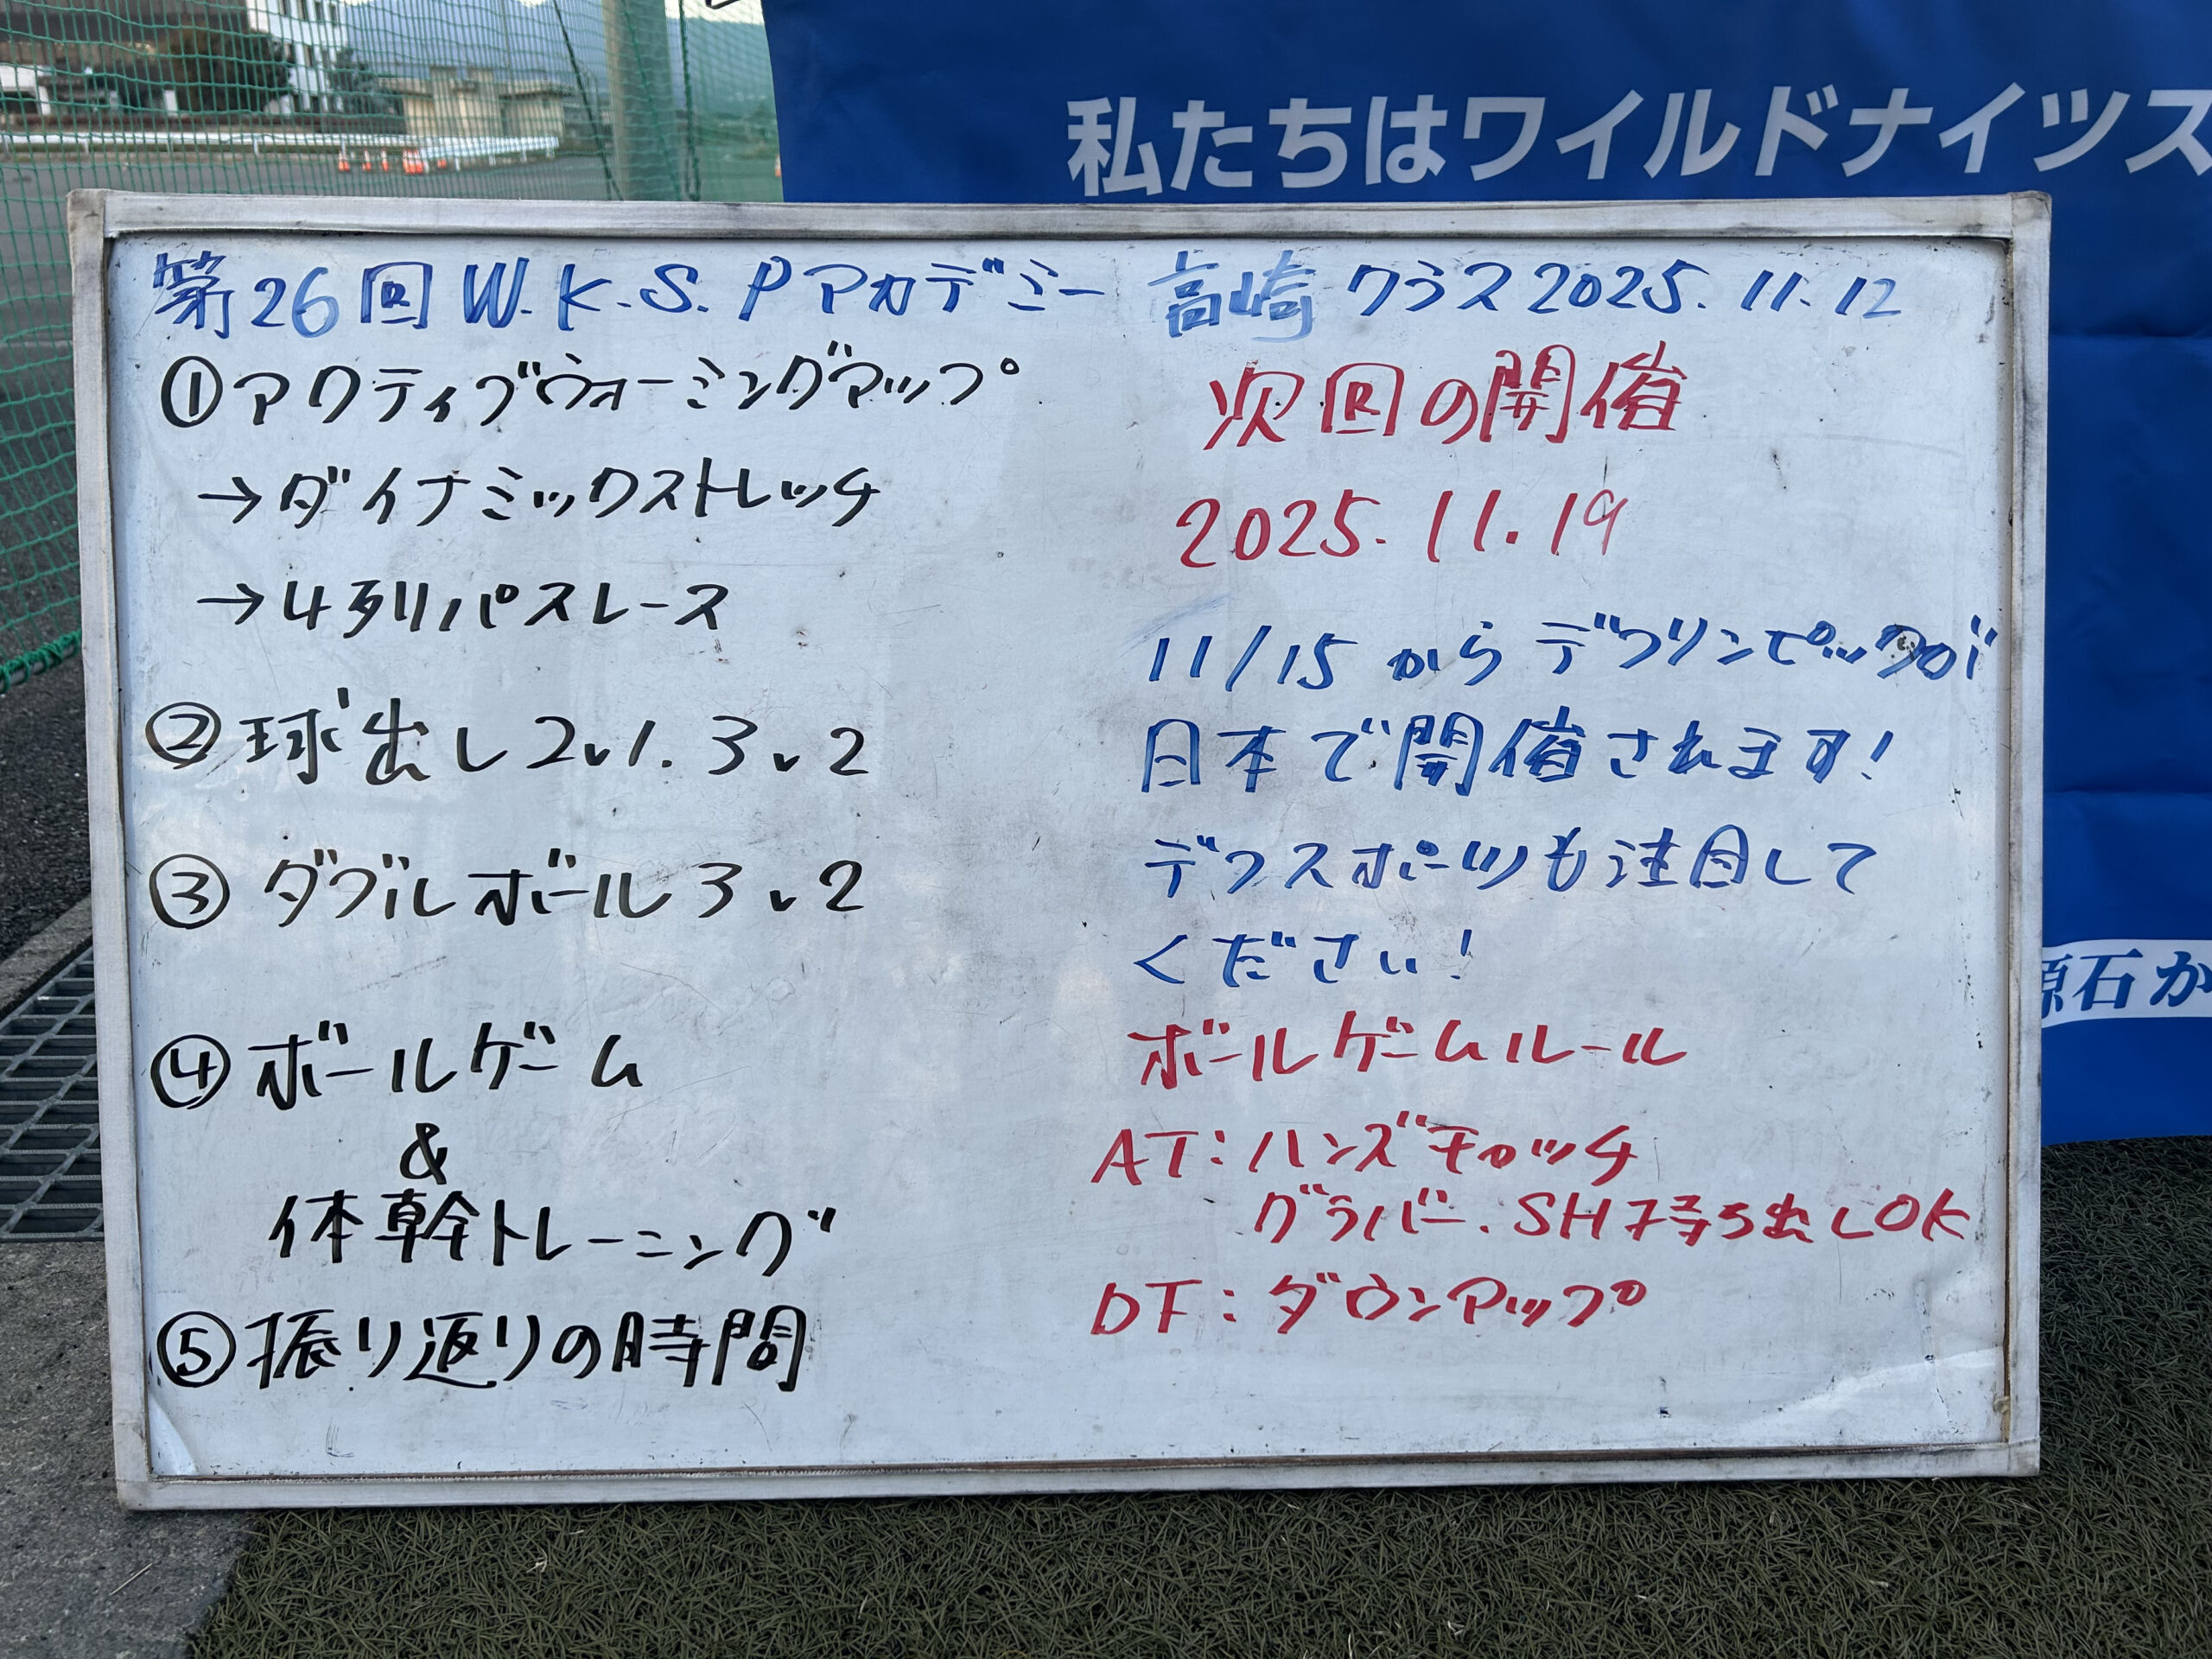 私たちはワイルドナイツス
第26回 W.K.S.Pアカデミー 高崎クラス 2025.11.12
①アクティブウォーミングアップ
→ダイナミックストレッチ
→4列パスレース
②球出し2v1.3v2
③ダブルボール3v2
④ボールゲーム
&
体幹トレーニング
⑤振り返りの時間
次回の開催
2025.11.19
11/15からデフリンピックが
日本で開催されます!
デフスポーツも注目して
ください!
ボールゲームルール
AT:ハンズキャッチ
グラバー.SH持ち出しOK
DF:ダウンアップ
原石か